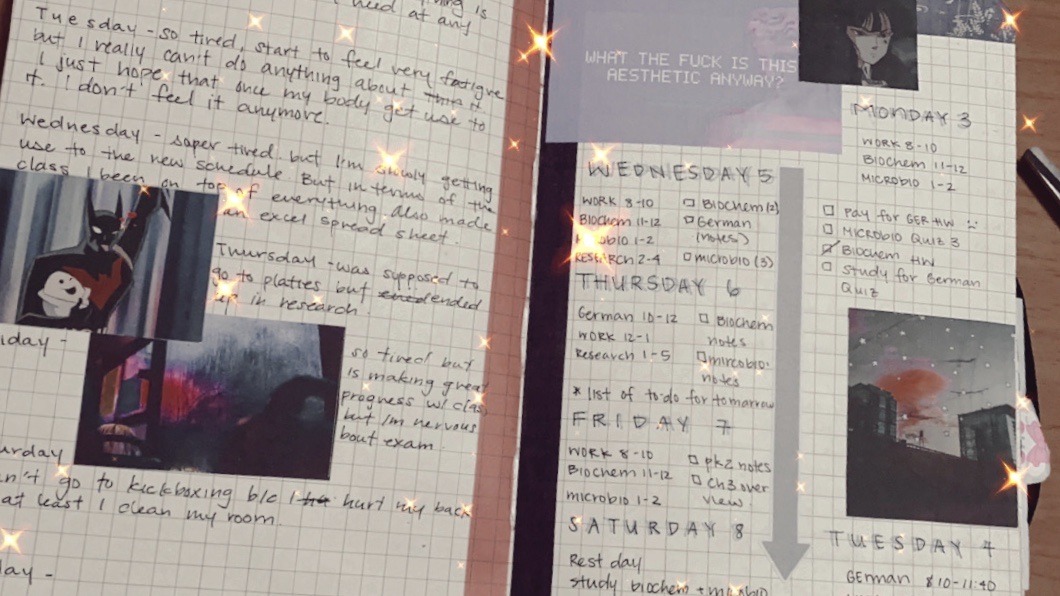 is
need at any
Tuesday - so tired, start to feel very fatigue
but I really can't do anything about this it
I just hope that once my body get use to
it. I don't feel it anymore.
Wednesday - super tired but I'm slowly getting
use to the new schedule But in terms of the
class I been on top of everything, also made
an excel spread sheet.
Thursday - was supposed to
go to plattes but ended
up in research.
iday -
so tired but
is making great
progress w/ clas
but I'm nervous
bout exam.
urday
n't go to kickboxing b/c I hurt my back
at least I clean my room.
day -
WHAT THE FUCK IS THIS
AESTHETIC ANYWAY?
WEDNESDAY 5
WORK 8-10
Biochem 11-12
Microbio 1-2
RESEARCH 2-4
Biochem (2)
German
(notes)
microbio (3)
THURSDAY 6
German 10-12
WORK 12-1
Research 1-5
Biochem
notes
mircobio
notes
* list of to-do for tomorrow
FRIDAY 7
WORK 8-10
Biochem 11-12
microbio 1-2
pkz notes
Ch3 over
view
SATURDAY 8
Rest day
study biochem + microbio
MONDAY 3
WORK 8-10
Biochem 11-12
MICROBIO 1-2
Pay for GER HW
MICROBIO Quiz 3
Biochem HW
study for German
Quiz
TUESDAY 4
GERMAN 10-11:40